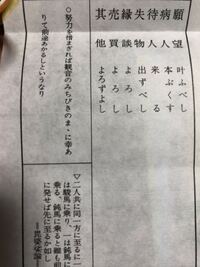 願望 叶ふべし
病人 本ぶくす
待人 来る
失物 出ずべし
縁談 よろし
売買 よろし
其他 よろずよし
○努力を惜まざれば観音のみちびきのまゝに幸あ
りて前途あかるしというなり
▽二人共に同一方に至るに一
は駿馬に乗り、一は鈍馬に
乗る、鈍馬に乗ると雖も前
に発せば先に至るか如し